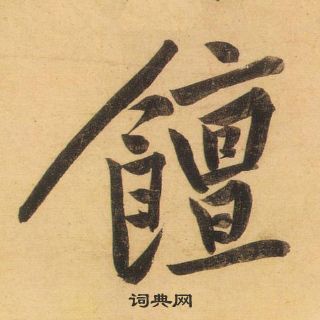 饘
词典网